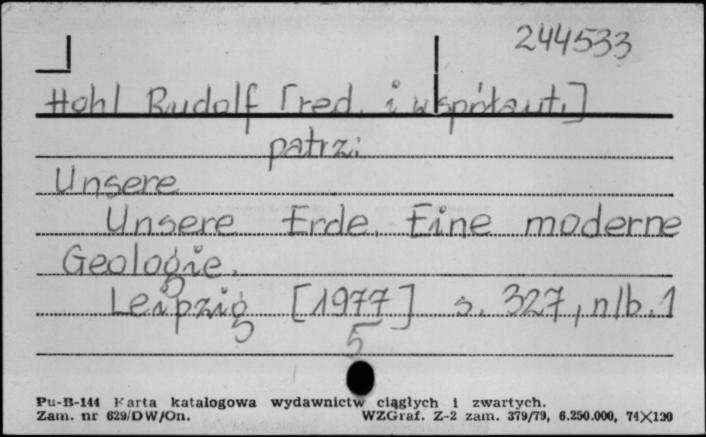 244533
Hohl Rudolf [red. i współaut.]
patrz:
Unsere
Unsere Erde. Eine moderne
Geologie.
Leipzig [1977] s. 327, nlb. 1
5
Pu-B-144 Karta katalogowa wydawnictw ciągłych i zwartych.
Zam. nr 629/DW/On. WZGraf. Z-2 zam. 379/79, 6.250.000, 74×120